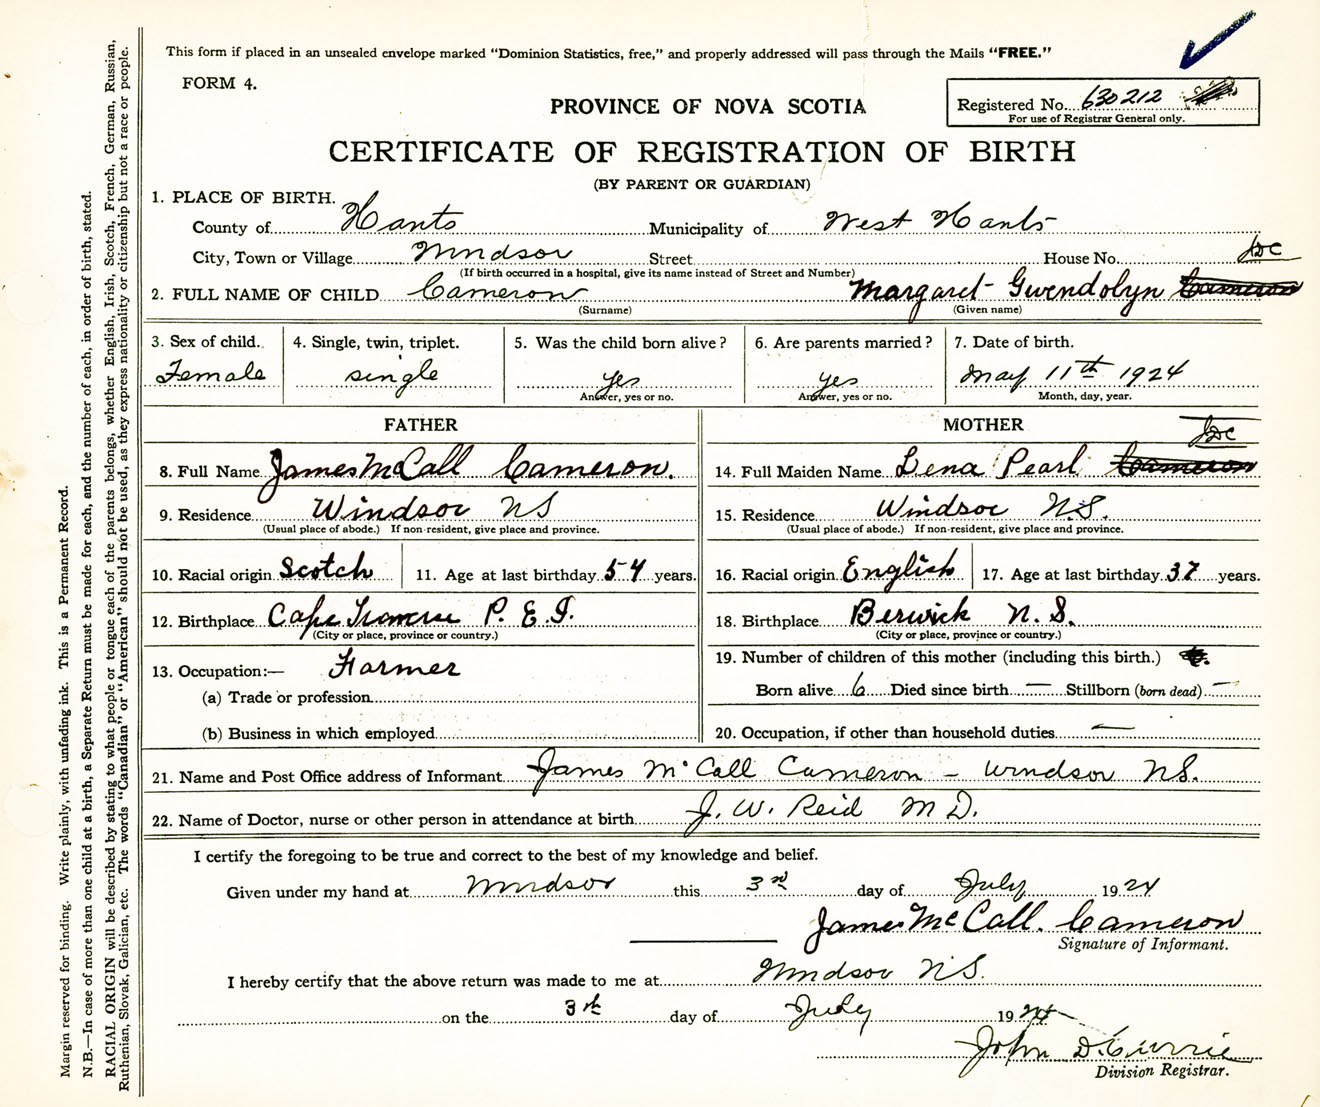 This form if placed in an unsealed envelope marked "Dominion Statistics, free," and properly addressed will pass through the Mails "FREE."
FORM 4.
PROVINCE OF NOVA SCOTIA
Registered No. 630212
For use of Registrar General only.
CERTIFICATE OF REGISTRATION OF BIRTH
(BY PARENT OR GUARDIAN)
1. PLACE OF BIRTH.
County of Hants Municipality of West Hants
City, Town or Village Windsor Street House No.
(If birth occurred in a hospital, give its name instead of Street and Number)
JDC
2. FULL NAME OF CHILD Cameron Margaret Gwendolyn Cameron
(Surname) (Given name)
3. Sex of child. 4. Single, twin, triplet. 5. Was the child born alive? 6. Are parents married? 7. Date of birth.
Female single yes yes May 11th 1924
Answer, yes or no. Answer, yes or no. Month, day, year.
FATHER MOTHER
JDC
8. Full Name James McCall Cameron. 14. Full Maiden Name Lena Pearl Cameron
9. Residence Windsor NS 15. Residence Windsor N.S.
(Usual place of abode.) If non-resident, give place and province. (Usual place of abode.) If non-resident, give place and province.
10. Racial origin Scotch 11. Age at last birthday 54 years. 16. Racial origin English 17. Age at last birthday 37 years.
12. Birthplace Cape Traverse P. E. I. 18. Birthplace Berwick N. S.
(City or place, province or country.) (City or place, province or country.)
13. Occupation:— Farmer 19. Number of children of this mother (including this birth.)
(a) Trade or profession Born alive 6 Died since birth — Stillborn (born dead) —
(b) Business in which employed 20. Occupation, if other than household duties —
21. Name and Post Office address of Informant James McCall Cameron – Windsor NS.
22. Name of Doctor, nurse or other person in attendance at birth J. W. Reid M D.
I certify the foregoing to be true and correct to the best of my knowledge and belief.
Given under my hand at Windsor this 3rd day of July 1924
James McCall. Cameron
Signature of Informant.
I hereby certify that the above return was made to me at Windsor NS.
on the 3rd day of July 1924
John D. Currie
Division Registrar.
Margin reserved for binding. Write plainly, with unfading ink. This is a Permanent Record.
N.B.—In case of more than one child at a birth, a Separate Return must be made for each, and the number of each, in order of birth, stated.
RACIAL ORIGIN will be described by stating to what people or tongue each of the parents belongs, whether English, Irish, Scotch, French, German, Russian,
Ruthenian, Slovak, Galician, etc. The words "Canadian" or "American" should not be used, as they express nationality or citizenship but not a race or people.